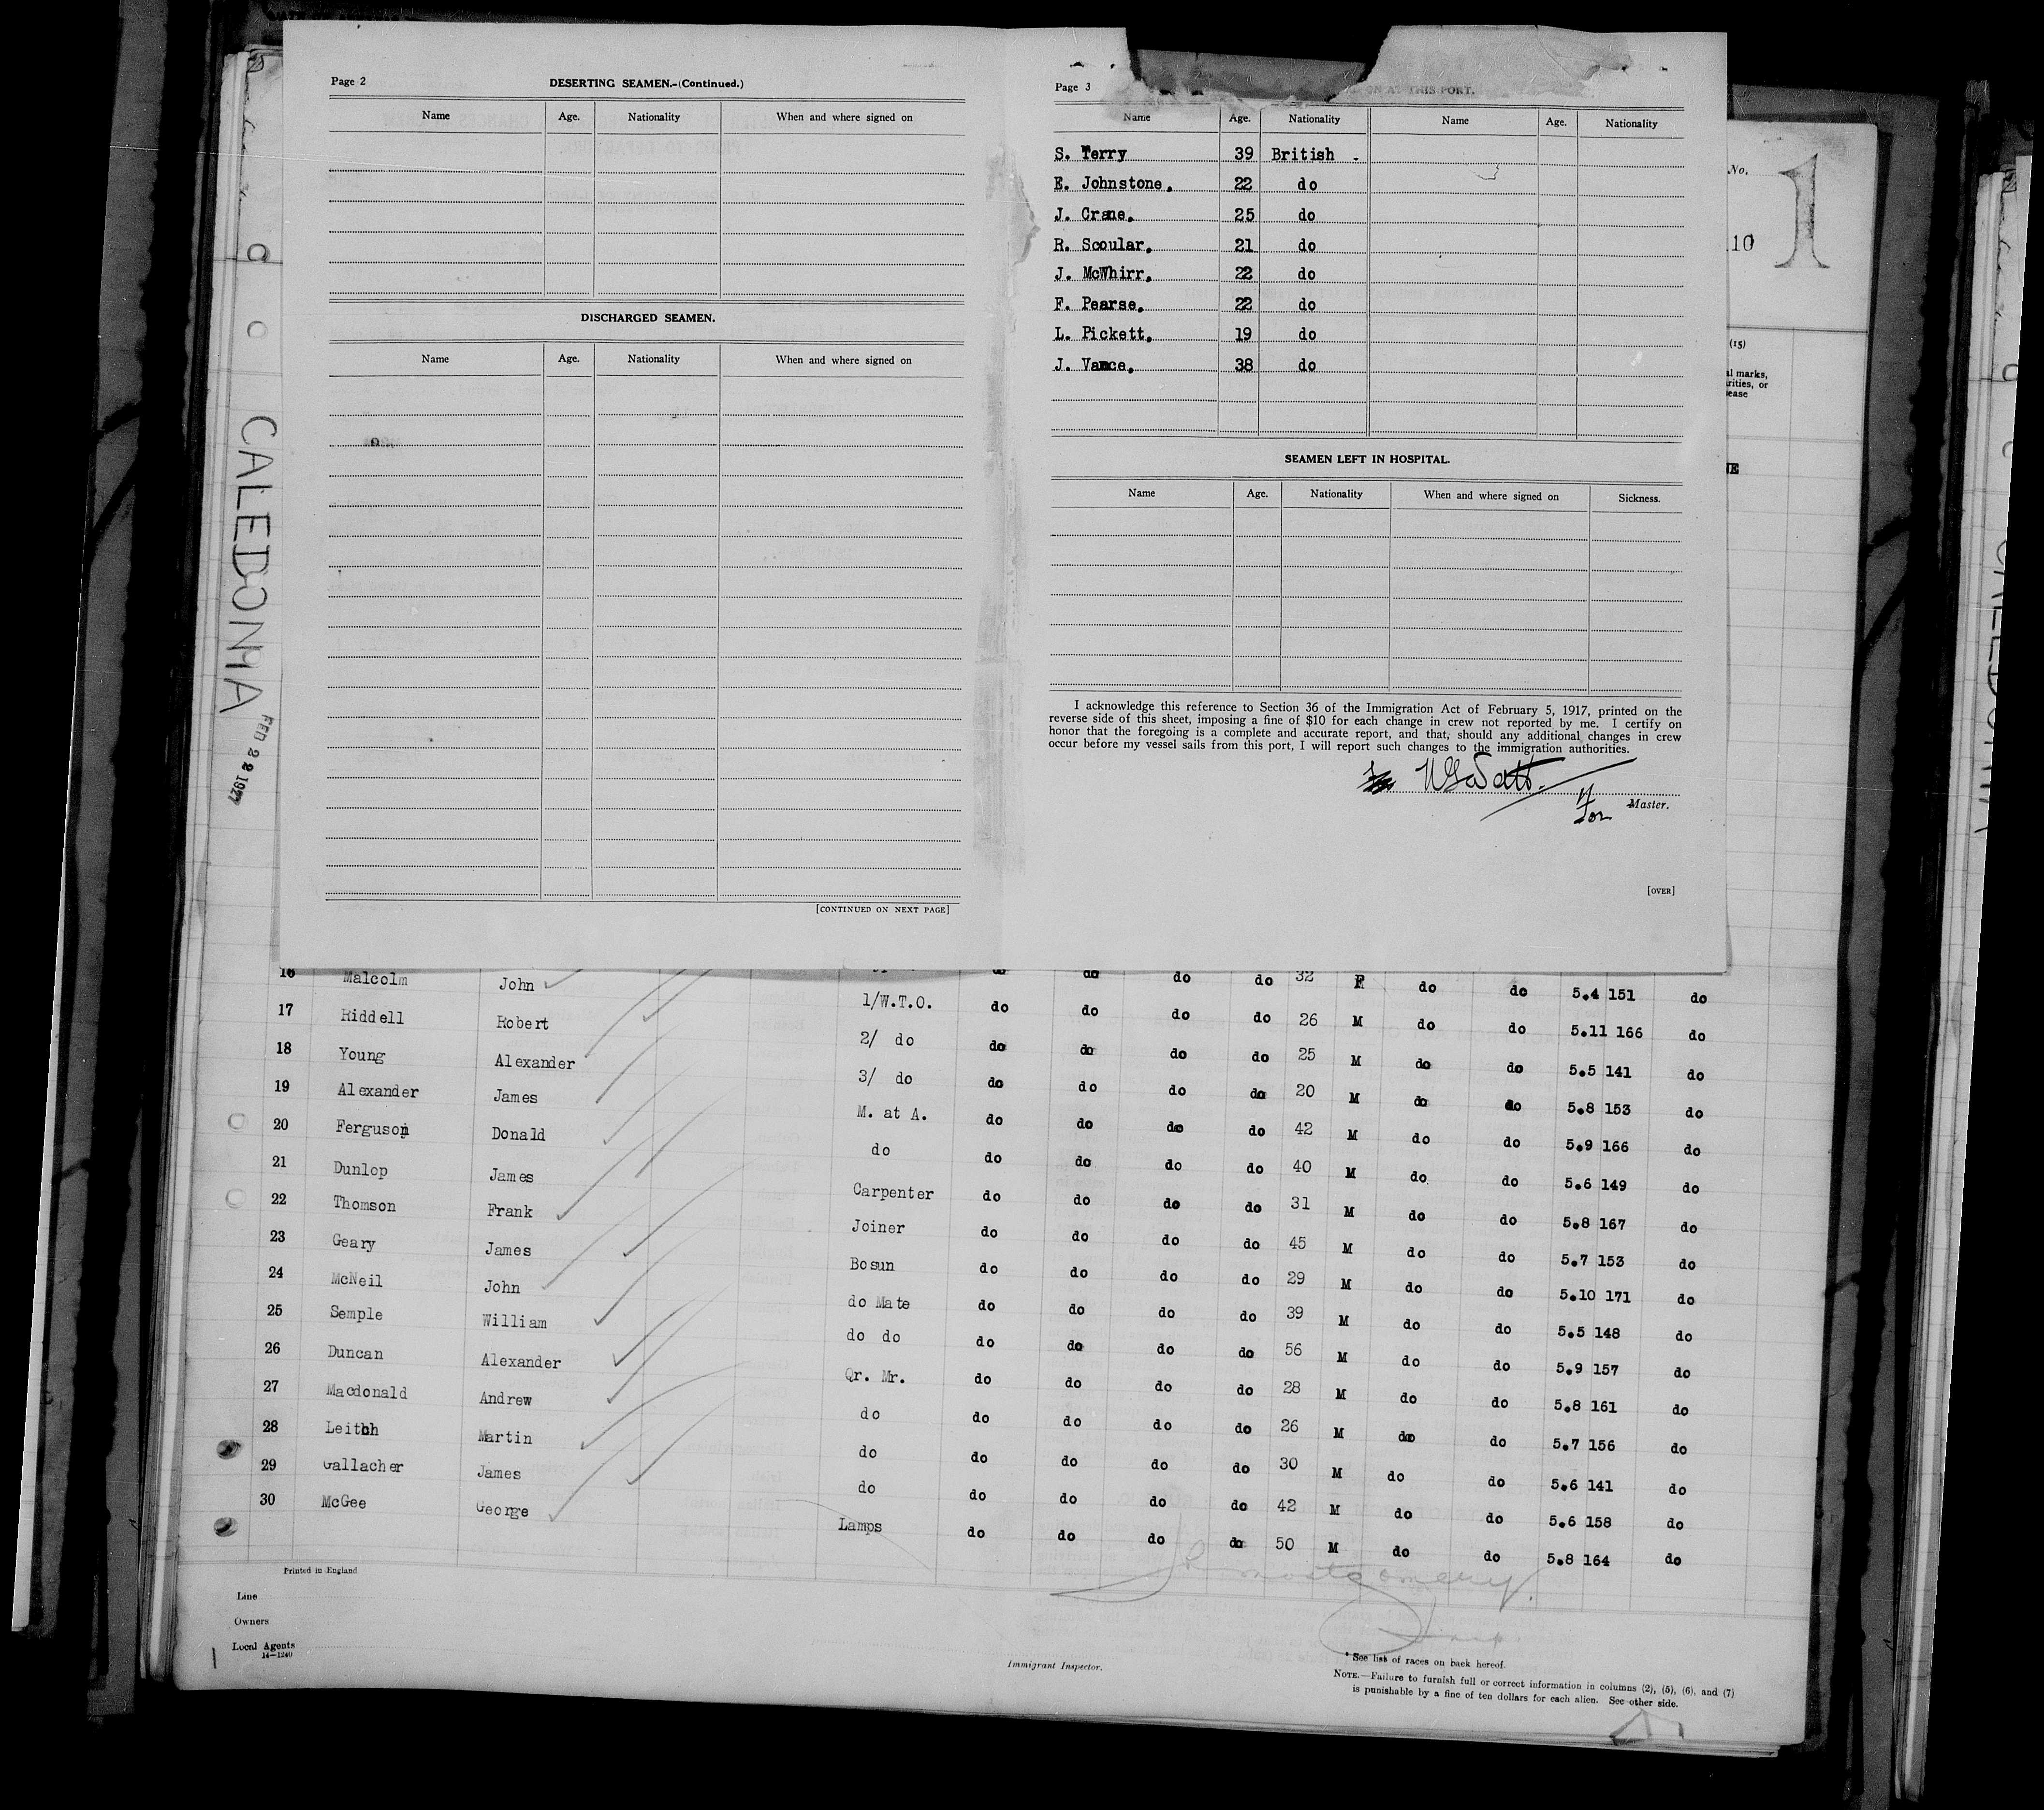 Page 2
DESERTING SEAMEN.-(Continued.)
Name Age. Nationality When and where signed on
DISCHARGED SEAMEN.
Name Age. Nationality When and where signed on
[CONTINUED ON NEXT PAGE]
Page 3
ON AT THIS PORT.
Name Age. Nationality Name Age. Nationality
S. Terry 39 British
E. Johnstone. 22 do
J. Crane. 25 do
R. Scoular. 21 do
J. McWhirr. 22 do
F. Pearse. 22 do
L. Pickett. 19 do
J. Vance. 38 do
SEAMEN LEFT IN HOSPITAL.
Name Age. Nationality When and where signed on Sickness.
I acknowledge this reference to Section 36 of the Immigration Act of February 5, 1917, printed on the
reverse side of this sheet, imposing a fine of $10 for each change in crew not reported by me. I certify on
honor that the foregoing is a complete and accurate report, and that, should any additional changes in crew
occur before my vessel sails from this port, I will report such changes to the immigration authorities.
for Master.
[OVER]
No.
1
10
(15)
al marks,
rities, or
ease
NE
CALEDONIA
FEB 22 1927
do do do do 32 F do do 5.4 151 do
16 Malcolm John 1/W.T.O. do do do do 26 M do do 5.11 166 do
17 Riddell Robert 2/ do do do do do 25 M do do 5.5 141 do
18 Young Alexander 3/ do do do do do 20 M do do 5.8 153 do
19 Alexander James M. at A. do do do do 42 M do do 5.9 166 do
20 Ferguson Donald do do do do do 40 M do do 5.6 149 do
21 Dunlop James Carpenter do do do do 31 M do do 5.8 167 do
22 Thomson Frank Joiner do do do do 45 M do do 5.7 153 do
23 Geary James Bosun do do do do 29 M do do 5.10 171 do
24 McNeil John do Mate do do do do 39 M do do 5.5 148 do
25 Semple William do do do do do do 56 M do do 5.9 157 do
26 Duncan Alexander Qr. Mr. do do do do 28 M do do 5.8 161 do
27 Macdonald Andrew do do do do do 26 M do do 5.7 156 do
28 Leitch Martin do do do do do 30 M do do 5.6 141 do
29 Gallacher James do do do do do 42 M do do 5.6 158 do
30 McGee George Lamps do do do do 50 M do do 5.8 164 do
Printed in England
Line
Owners
Local Agents
14—1240
Immigrant Inspector.
* See list of races on back hereof.
NOTE.—Failure to furnish full or correct information in columns (2), (5), (6), and (7)
is punishable by a fine of ten dollars for each alien. See other side.